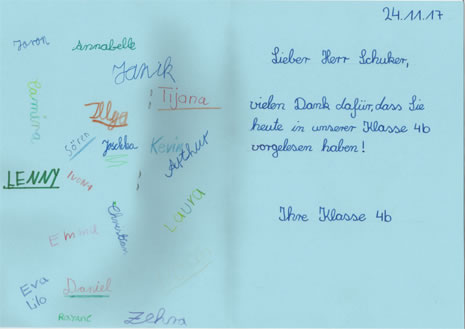 Jaron
Annabelle
Janik
Tijana
Jamira
Ilga
Sören
Joschka
Kevin
Arthur
LENNY
Ivona
Christian
Laura
Emma
Eva
Lilo
Daniel
Zehra
24.11.17
Lieber Herr Schuker,
vielen Dank dafür, dass Sie
heute in unserer Klasse 4b
vorgelesen haben!
Ihre Klasse 4b